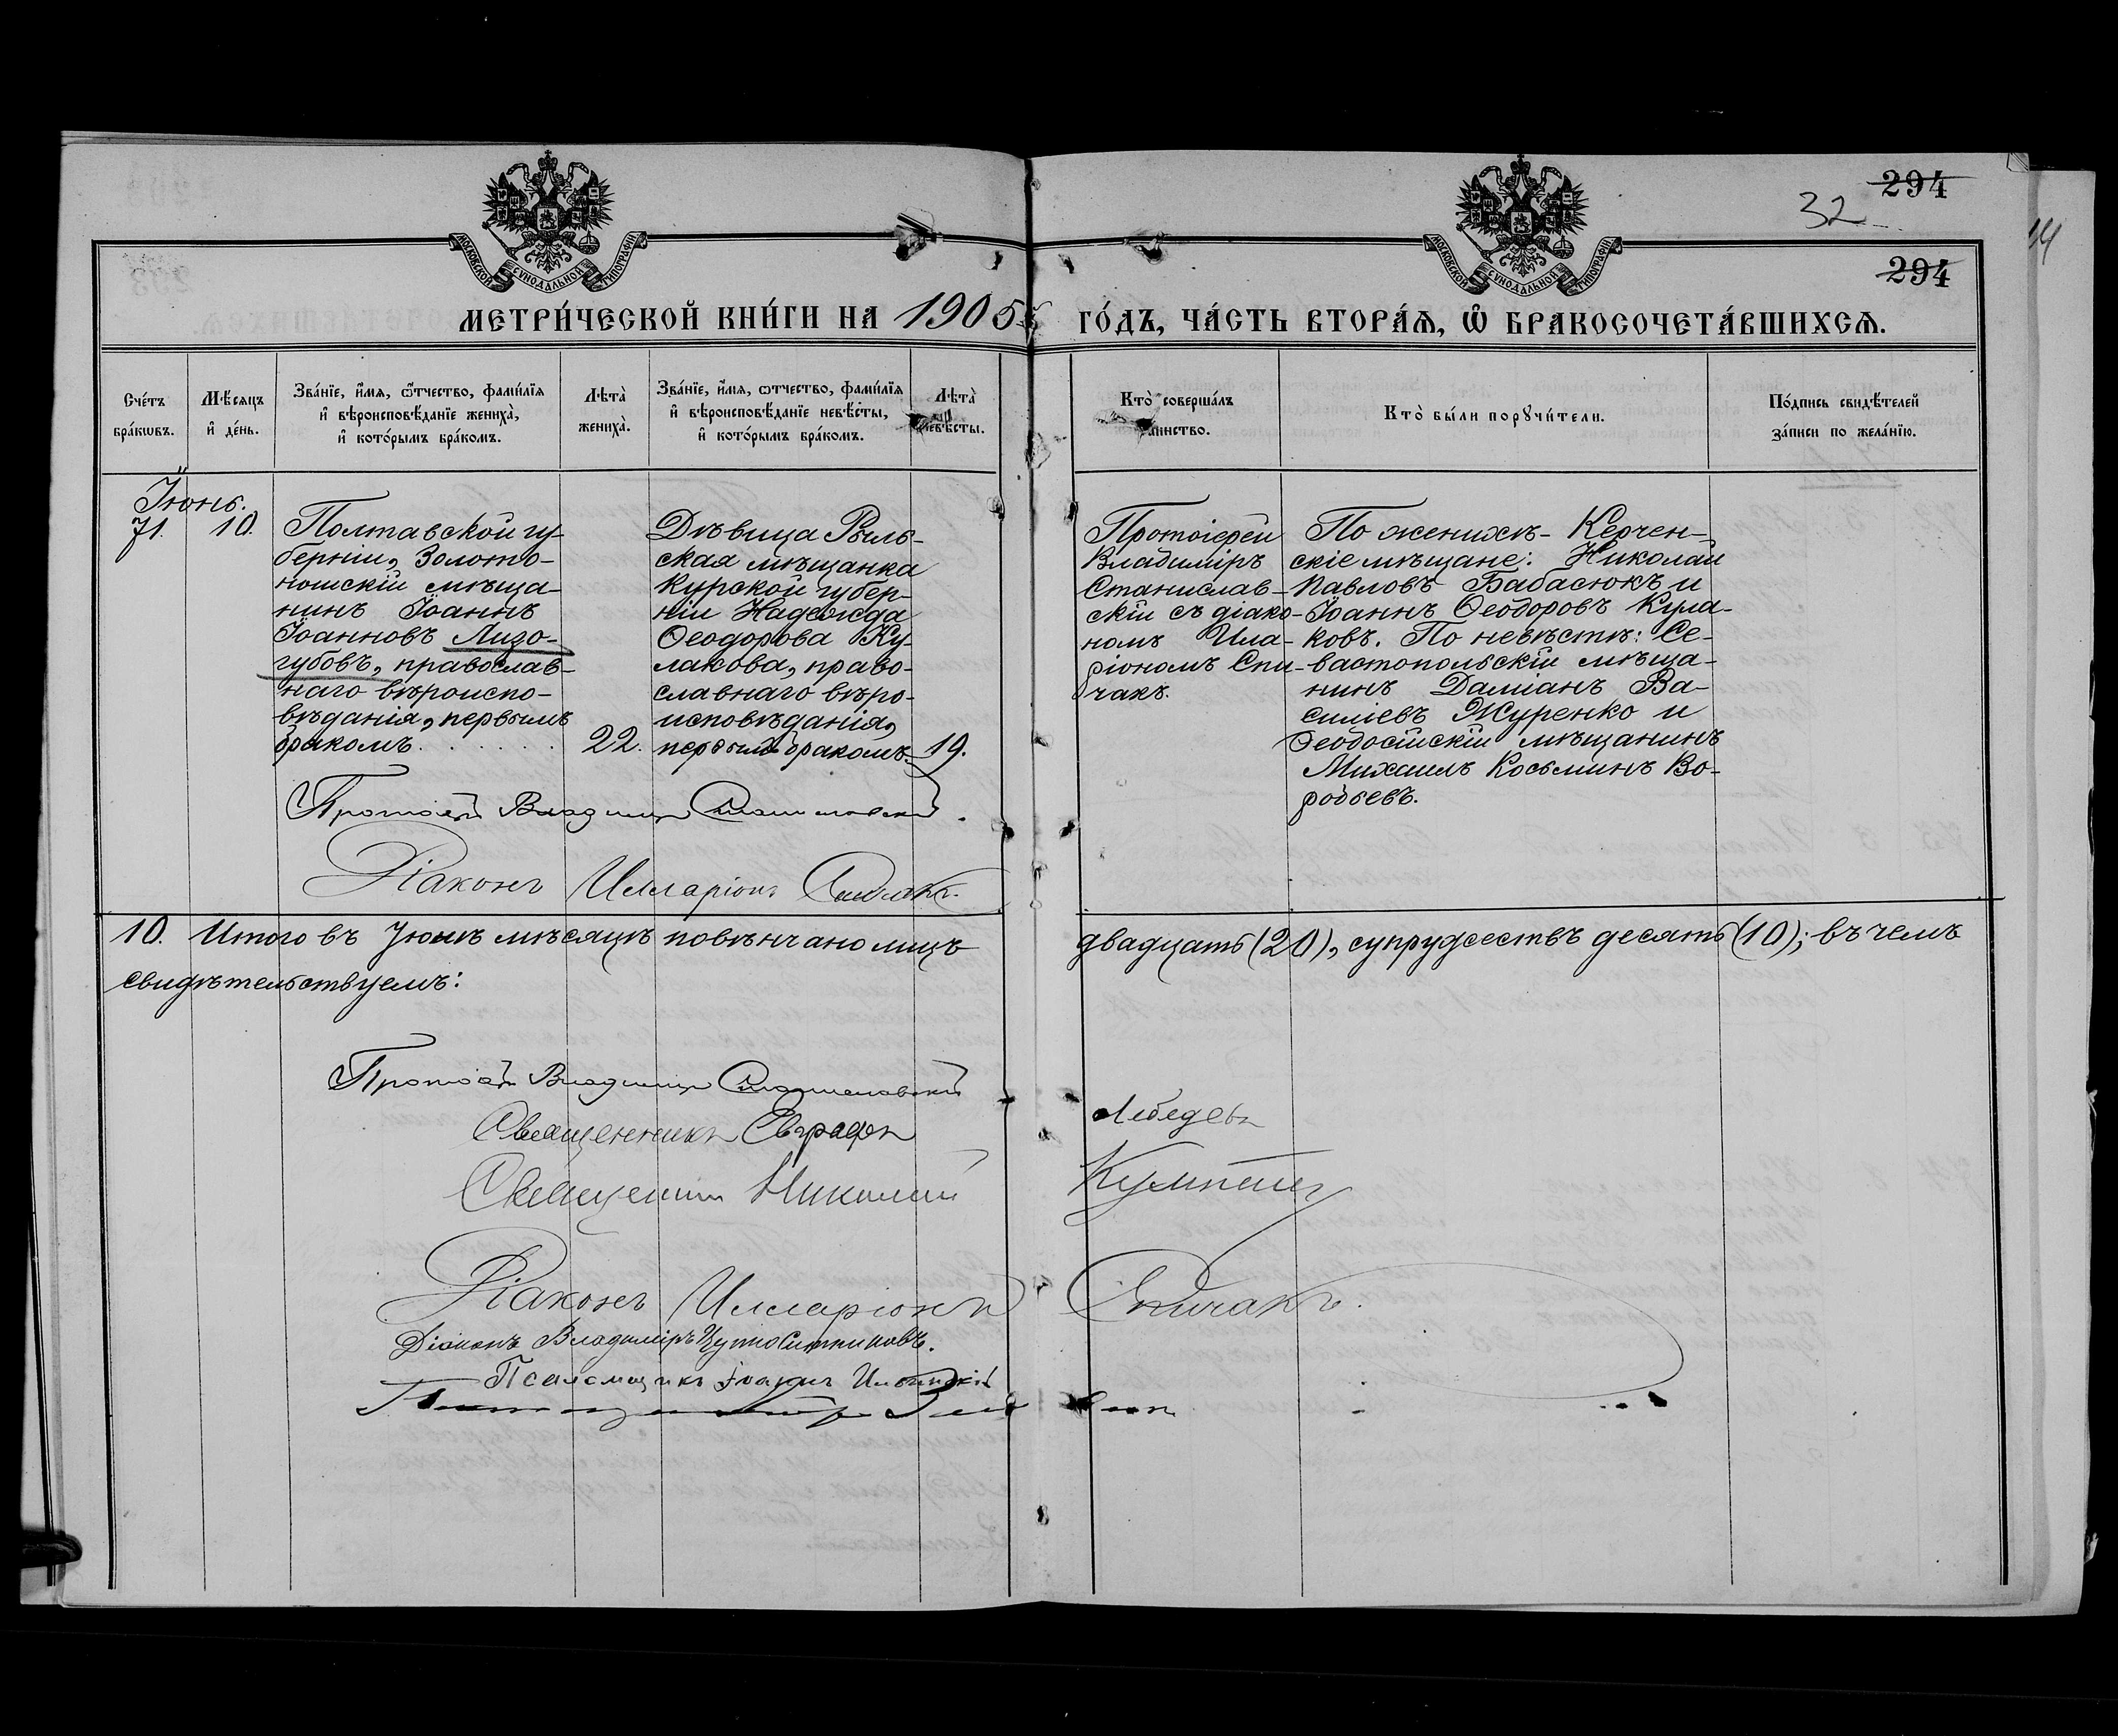 294
32
14
294
МОСКОВСКОЙ СУНОДАЛЬНОЙ ТИПОГРАФІИ
МОСКОВСКОЙ СУНОДАЛЬНОЙ ТИПОГРАФІИ
МЕТРИ́ЧЕСКОЙ КНИ́ГИ НА 1905 ГО́ДЪ, ЧА́СТЬ ВТОРА́Ѧ, Ѡ҆ БРАКОСОЧЕТА́ВШИХСѦ.
Сче́тъ
бра́кѡвъ.
Мѣ́сѧцъ
и҆ де́нь.
Зва́нїе, и҆́мѧ, ѻ҆́тчество, фами́лїѧ
и҆ вѣроисповѣ́данїе жениха̀,
и҆ кото́рымъ бра́комъ.
Лѣта̀
жениха̀.
Зва́нїе, и҆́мѧ, ѻтчество, фами́лїѧ
и҆ вѣроисповѣ́данїе невѣ́сты,
и҆ кото́рымъ бра́комъ.
Лѣта̀
невѣ́сты.
Кто̀ соверша́лъ
таинство.
Кто̀ бы́ли порꙋчи́тели.
По́дпись свидѣ́телей
за́писи по жела́нїю.
Іюнь.
71. 10.
Полтавской гу-
берніи, Золото-
ношскій мѣща-
нинъ Іоаннъ
Іоанновъ Лизо-
губовъ, православ-
наго вѣроиспо-
вѣданія, первымъ
бракомъ. . . . . . .
22.
Дѣвица Рыль-
ская мѣщанка
Курской губер-
ніи Надежда
Ѳеодорова Ку-
лакова, право-
славнаго вѣро-
исповѣданія,
первымъ бракомъ.
19.
Протоіерей
Владиміръ
Станислав-
скій съ діако-
номъ Ила-
ріономъ Спи-
чакъ.
По женихѣ- Керчен-
скіе мѣщане: Николай
Павловъ Бабасюкъ и
Іоаннъ Ѳеодоровъ Кула-
ковъ. По невѣстѣ: Се-
вастопольскій мѣща-
нинъ Даміанъ Ва-
силіевъ Журенко и
Ѳеодосійскій мѣщанинъ
Михаилъ Косьминъ Во-
робьевъ.
Протоіей Владиміръ Станиславскій.
Діаконъ Илларіонъ Спичакъ.
10. Итого въ Іюнѣ мѣсяцѣ повѣнчано лицъ двадцать (20), супружествъ десять (10); въ чемъ
свидѣтельствуемъ:
Протоіей Владиміръ Станиславскій
Священникъ Евграфъ Лебедевъ
Священникъ Николай
Діаконъ Илларіонъ Спичакъ.
Діаконъ Владиміръ
Псаломщикъ Іоаннъ